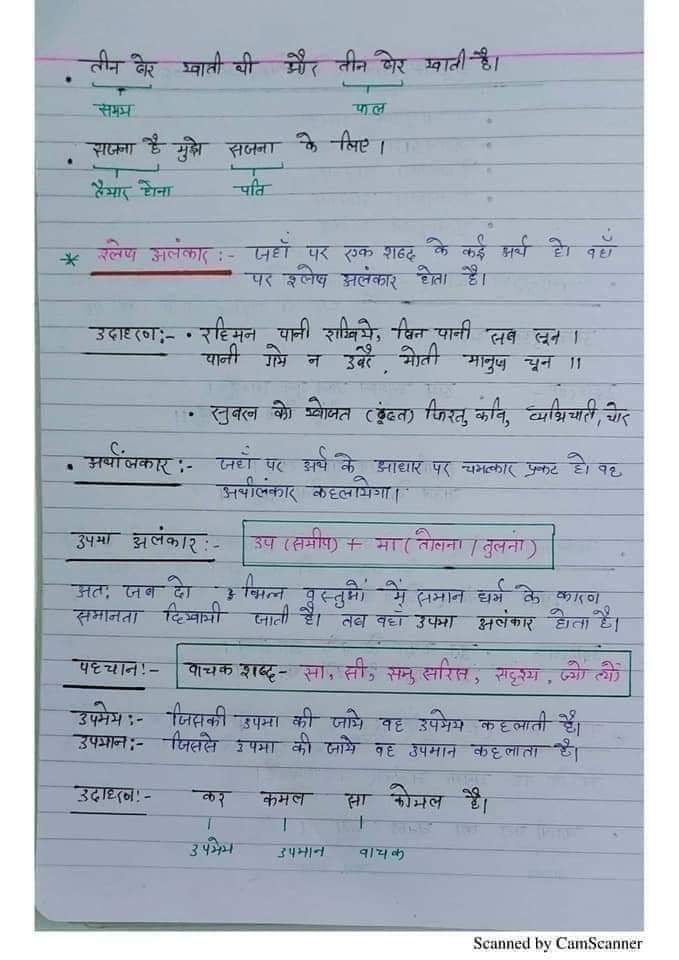 • तीन बेर खाती थी और तीन बेर खाती है।
समय फल
• सजना है मुझे सजना के लिए।
तैयार होना पति
* श्लेष अलंकार :- जहाँ पर एक शब्द के कई अर्थ हो। वहाँ
पर श्लेष अलंकार होता है।
उदाहरण:- • रहिमन पानी राखिये, बिन पानी सब सून।
पानी गये न उबरै, मोती मानुष चून ॥
• सुबरन को खोजत (ढूंढत) फिरतु कवि, व्यभिचारी, चोर
• अर्थालंकार :- जहाँ पर अर्थ के आधार पर चमत्कार प्रकट हो वह
अर्थालंकार कहलायेगा।
उपमा अलंकार:- उप (समीप) + मा (तोलना / तुलना)
अतः जब दो भिन्न वस्तुओं में समान धर्म के कारण
समानता दिखायी जाती है। तब वहाँ उपमा अलंकार होता है।
पहचान:- वाचक शब्द- सा, सी, सम, सरिस, सदृश्य, ज्यों त्यों
उपमेय:- जिसकी उपमा की जाये वह उपमेय कहलाती है।
उपमान:- जिससे उपमा की जाये वह उपमान कहलाता है।
उदाहरण:- कर कमल सा कोमल है।
उपमेय उपमान वाचक
Scanned by CamScanner